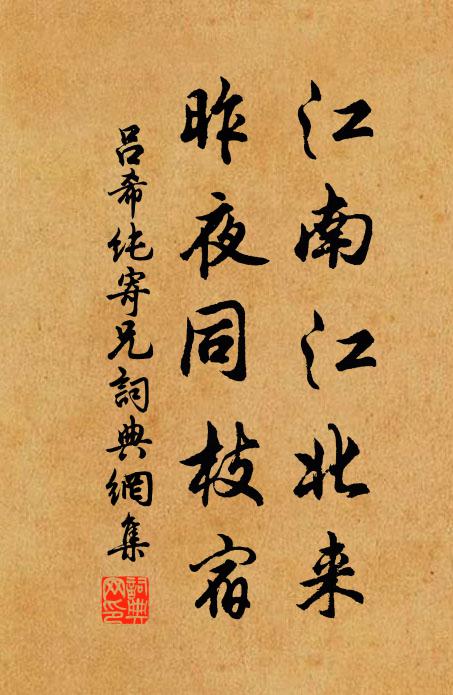 江南江北来
昨夜同枝宿
吕希纯寄兄詞典網集
詞典
网印